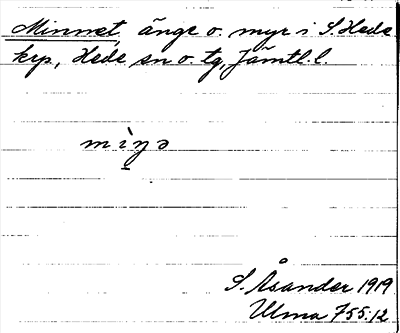 Minnet, änge o. myr i S. Hede
krp, Hede sn o. tg, Jämtl. l.
mìnə
S. Åsander 1919
Ulma 755:12